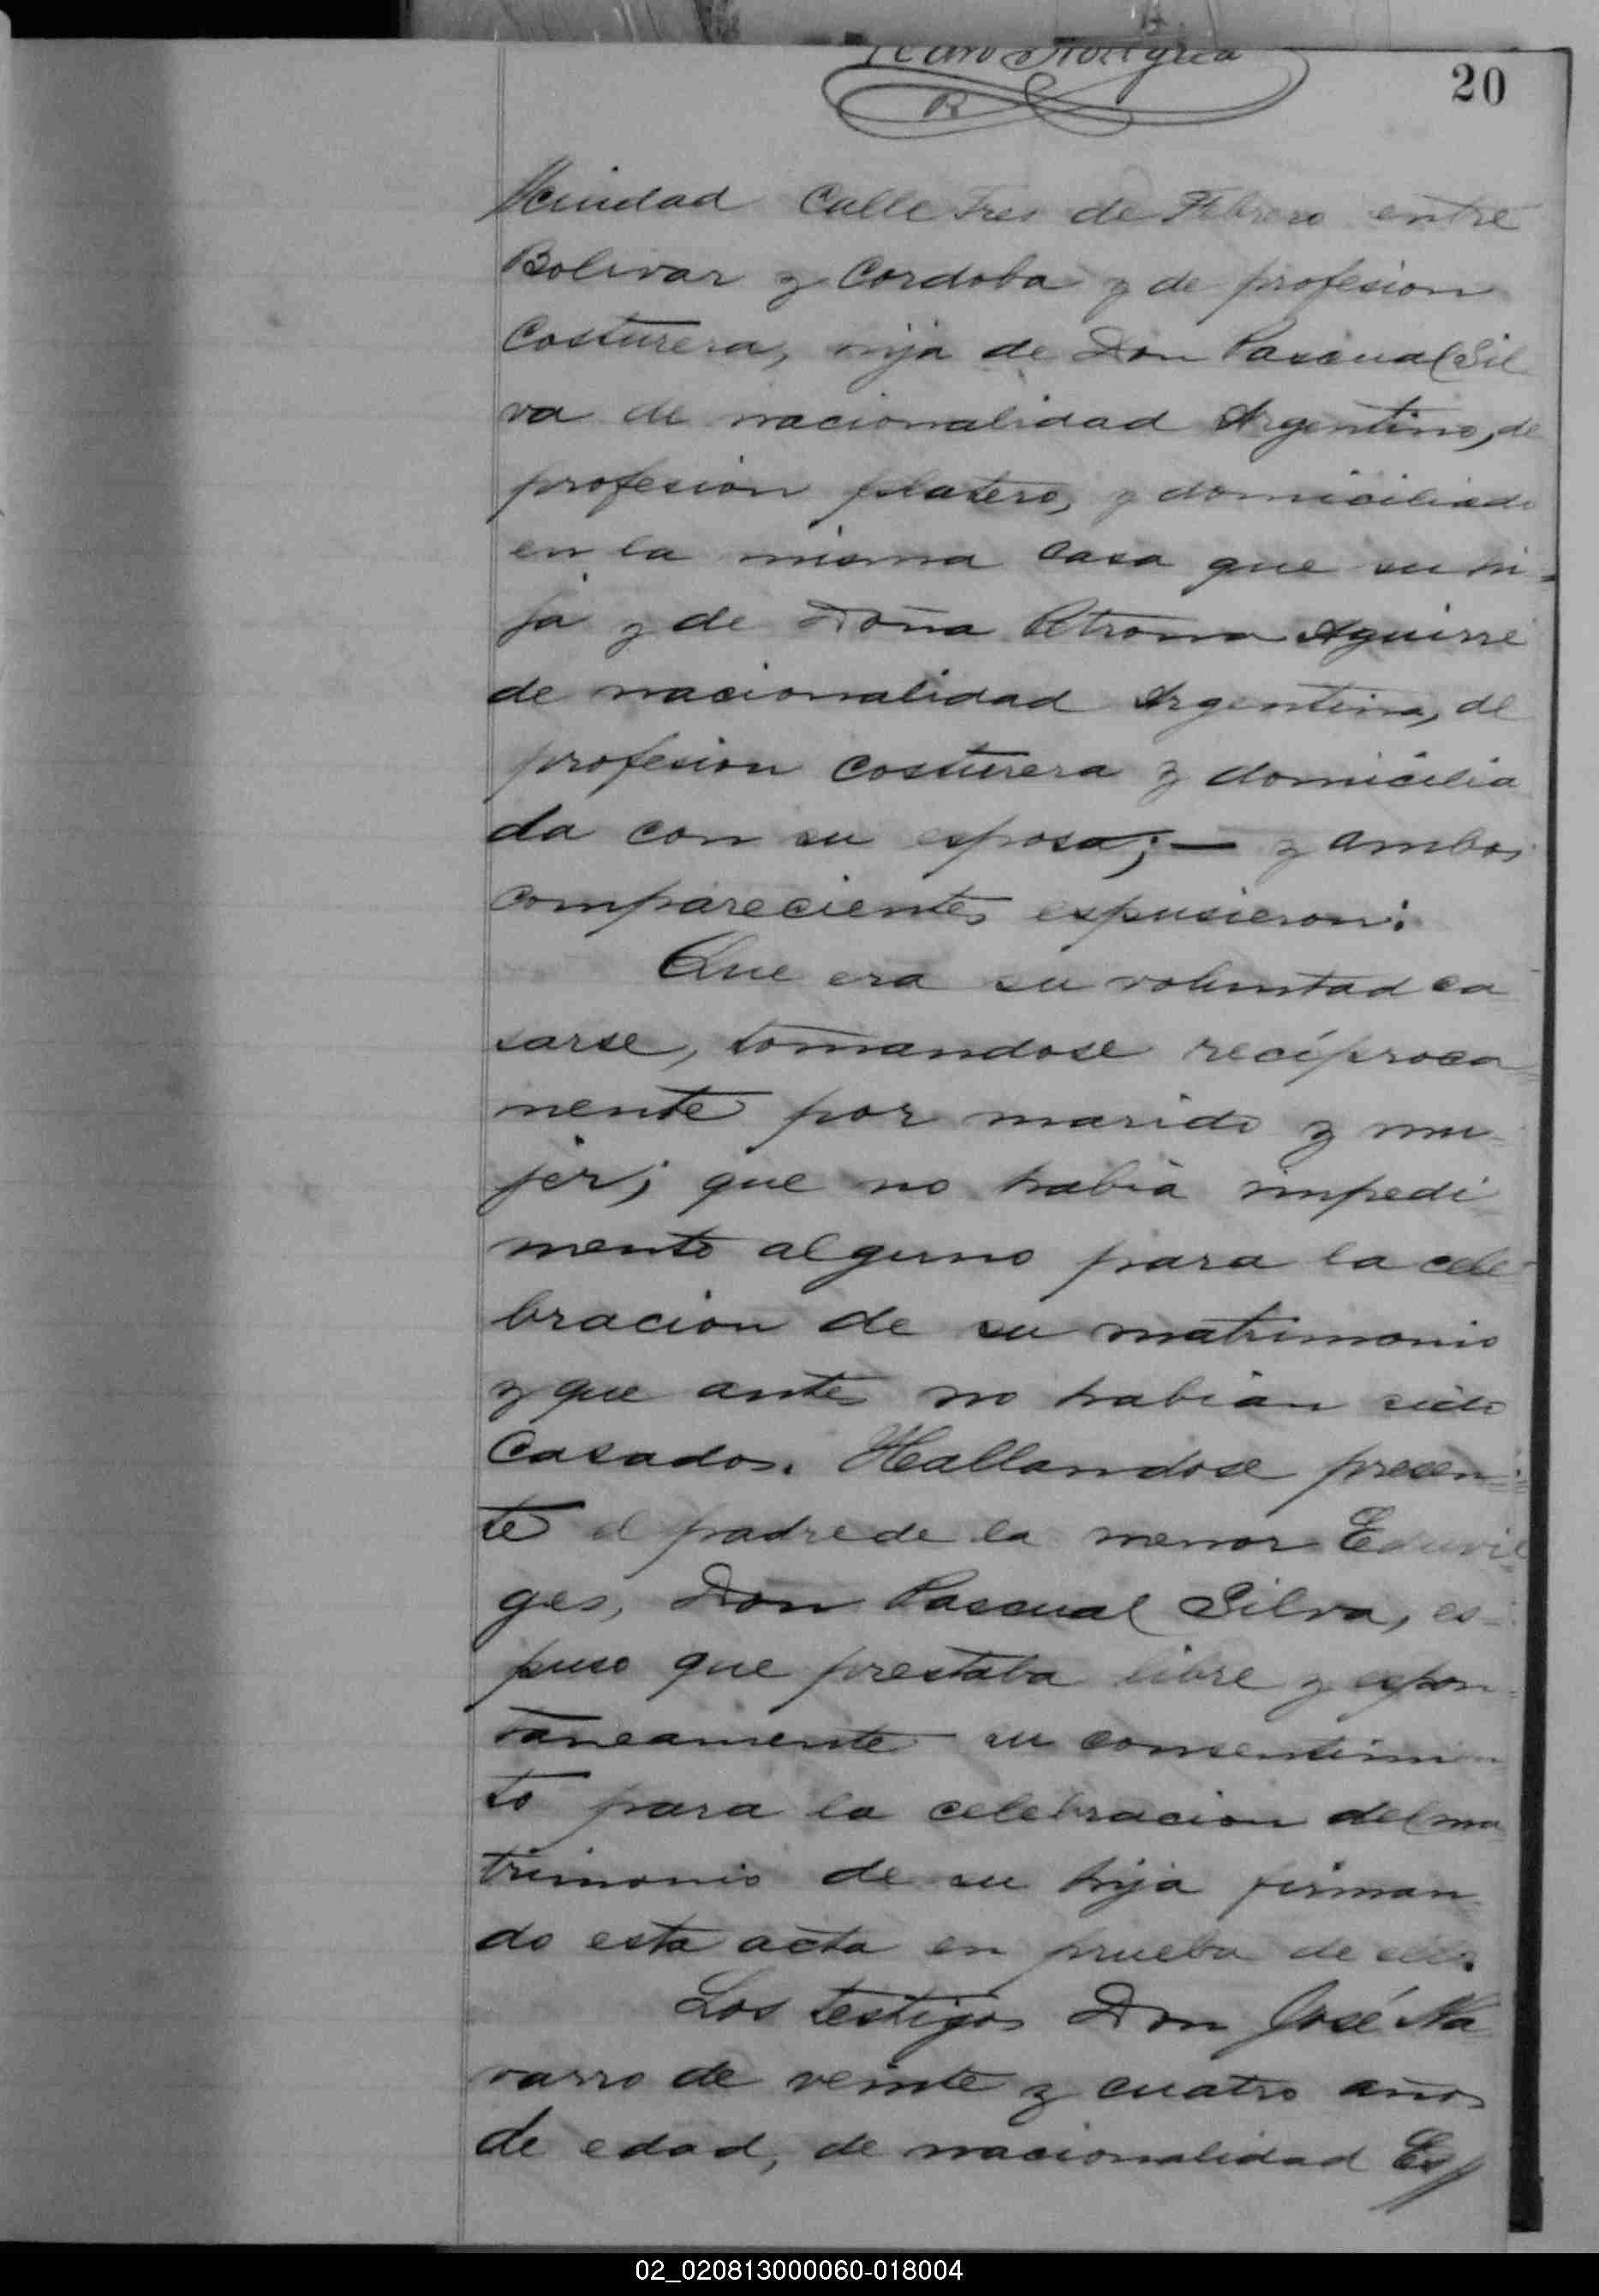 20
//ciudad Calle Tres de Febrero entre
Bolivar y Cordoba y de profesion
Costurera, hija de Don Pascual Sil
va de nacionalidad Argentino, de
profesion platero, y domiciliado
en la misma casa que su hi-
ja y de Doña Petrona Aguirre
de nacionalidad Argentina, de
profesion costurera y domicilia
da con su esposo; — y ambos
comparecientes espusieron:
Que era su voluntad ca
sarse, tomandose recíproca
mente por marido y mu-
jer; que no habia impedi
mento alguno para la cele
bracion de su matrimonio
y que antes no habian sido
casados. Hallandose presen=
te el padre de la menor Eduvil
ges, Don Pascual Silva, es-
puso que prestaba libre y espon-
taneamente su consentimien
to para la celebracion del ma
trimonio de su hija firman
do esta acta en prueba de ello.
Los testigos Don José Na
varro de veinte y cuatro años
de edad, de nacionalidad Es//
02_020813000060-018004